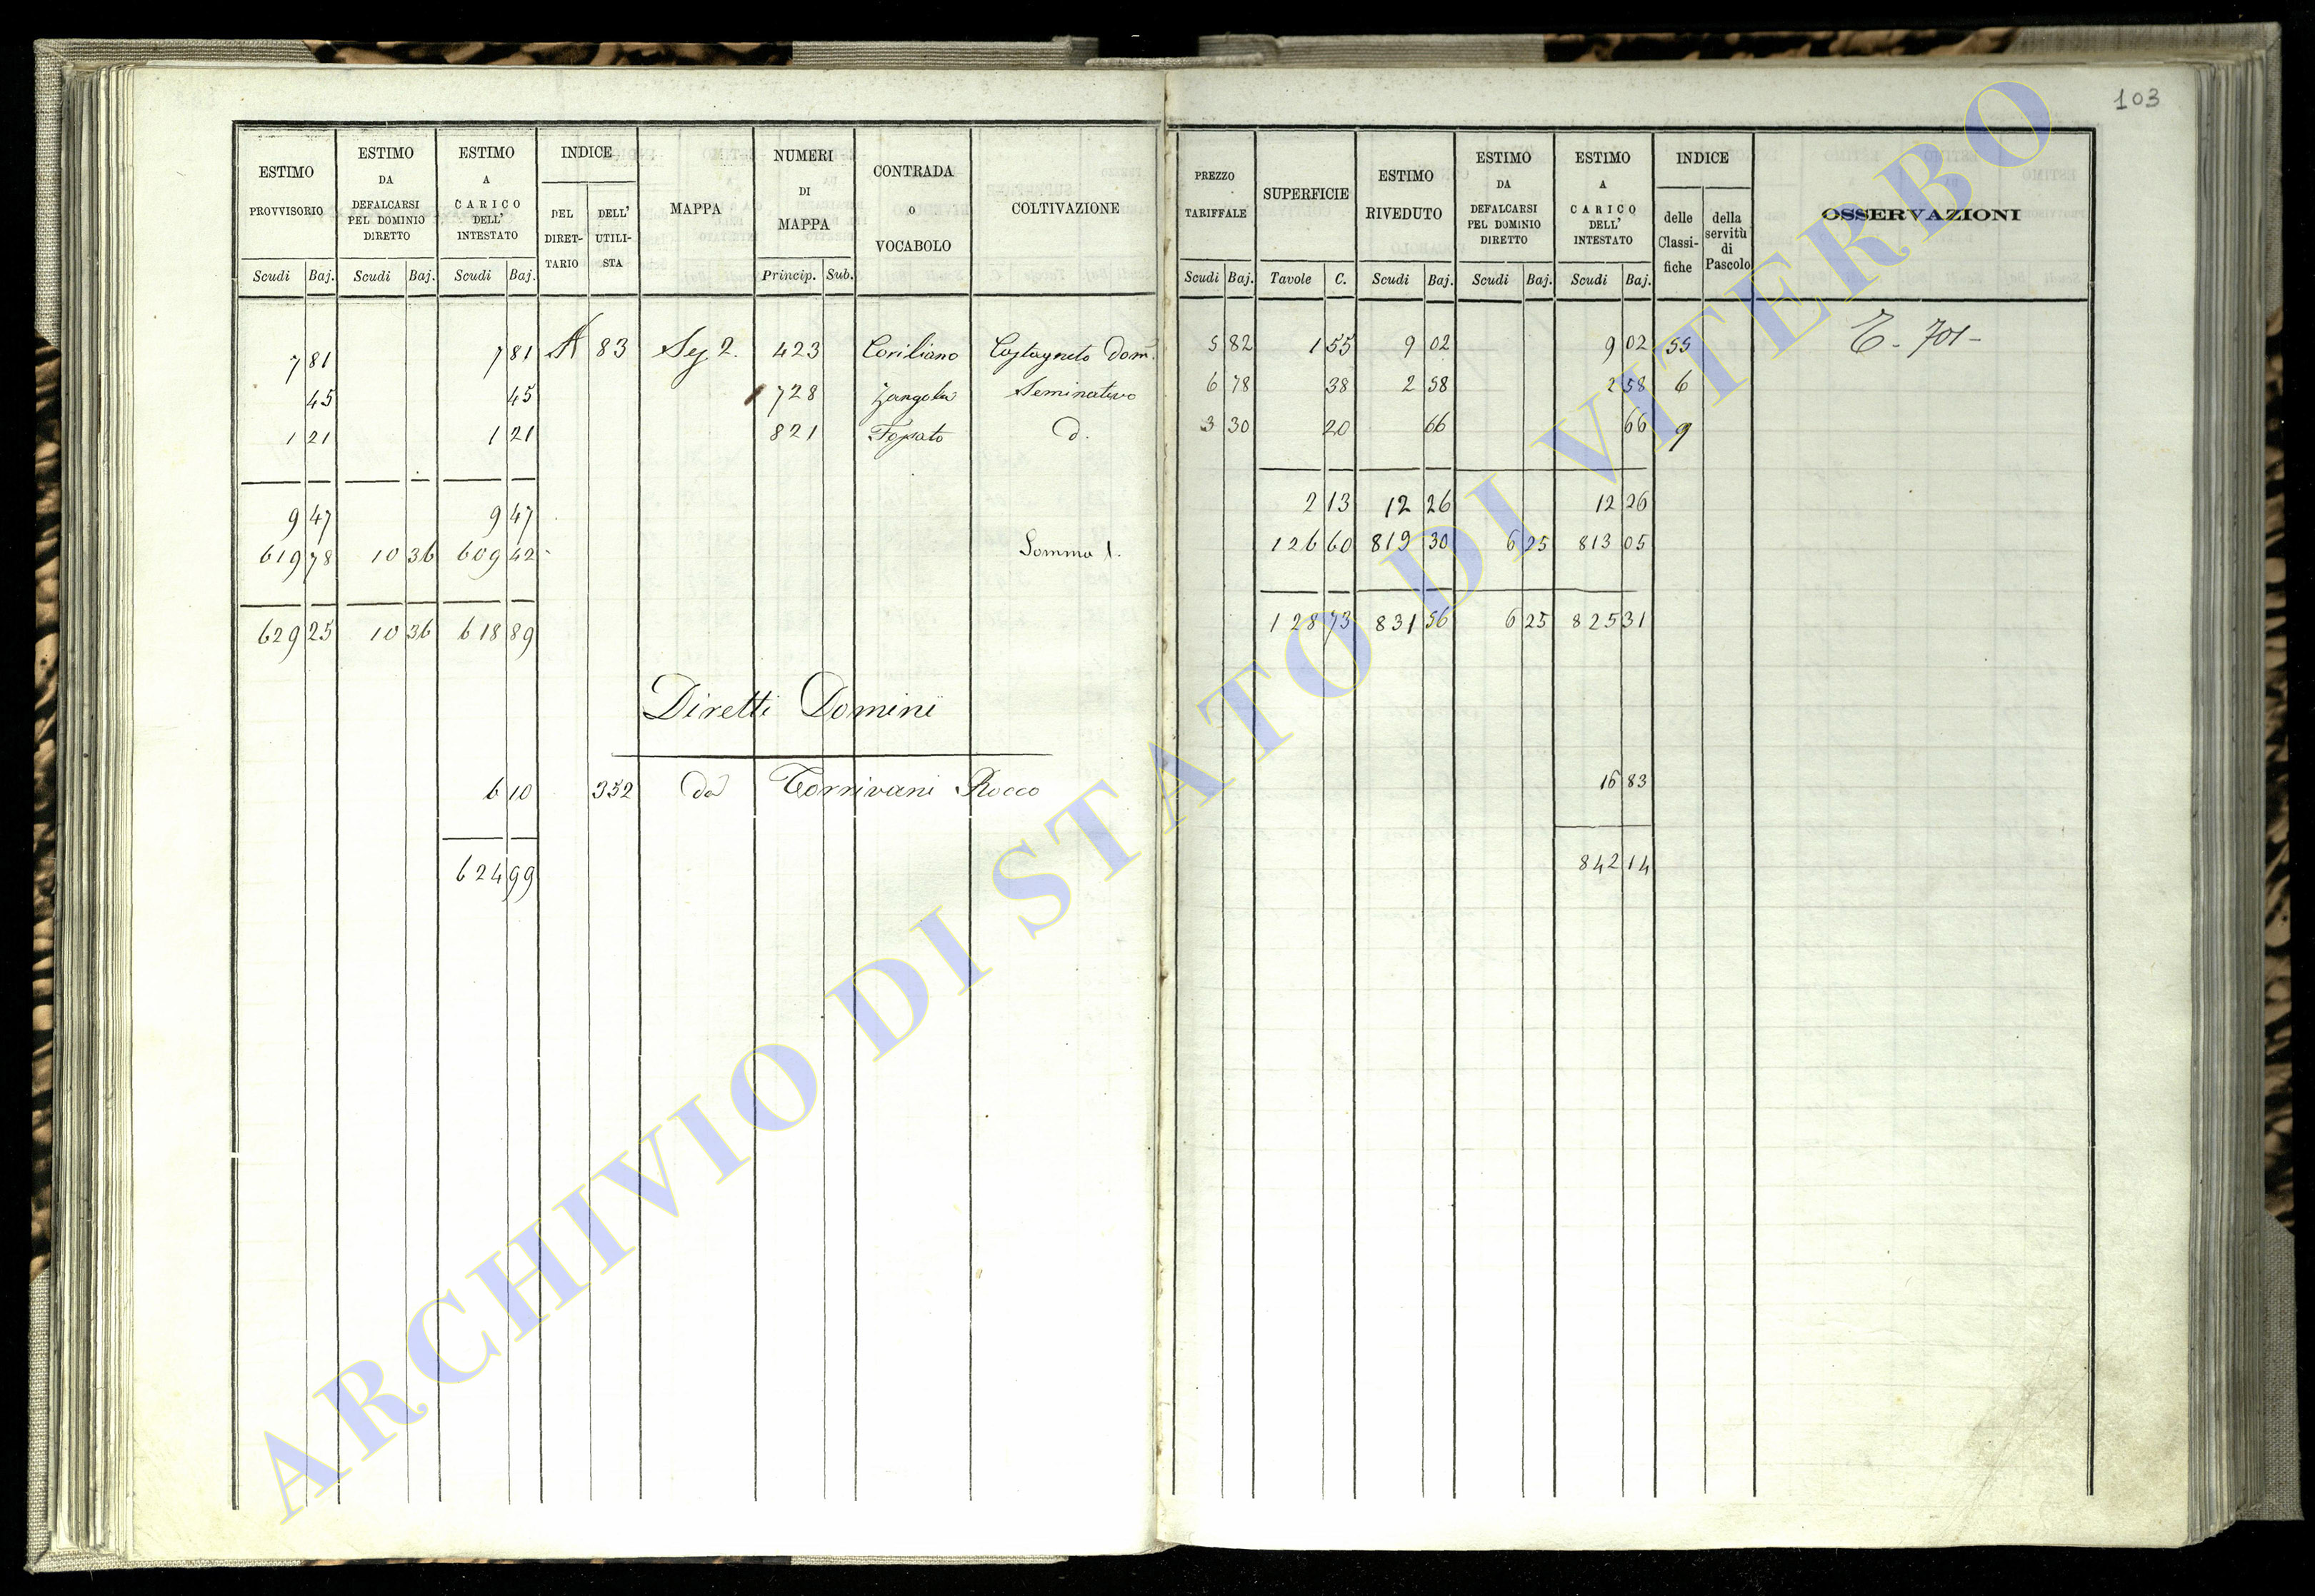 103
ESTIMO PROVVISORIO Scudi Baj. | ESTIMO DA DEFALCARSI PEL DOMINIO DIRETTO Scudi Baj. | ESTIMO A CARICO DELL' INTESTATO Scudi Baj. | INDICE DEL DIRETTARIO | DELL' UTILISTA | MAPPA | NUMERI DI MAPPA Princip. Sub. | CONTRADA o VOCABOLO | COLTIVAZIONE | PREZZO TARIFFALE Scudi Baj. | SUPERFICIE Tavole C. | ESTIMO RIVEDUTO Scudi Baj. | ESTIMO DA DEFALCARSI PEL DOMINIO DIRETTO Scudi Baj. | ESTIMO A CARICO DELL' INTESTATO Scudi Baj. | INDICE delle Classifiche | della servitù di Pascolo | OSSERVAZIONI
7 81 7 81 A 83 Sez 2. 423 Coriliano Castagneto Dom. 5 82 1 55 9 02 9 02 55 701
45 45 728 Zangola Seminativo 6 78 38 2 58 2 58 6
1 21 1 21 821 d. 3 30 20 66 66 9
9 47 9 47 2 13 12 26 12 26
619 78 10 36 609 42 Somma 1. 126 60 819 30 6 25 813 05
629 25 10 36 618 89 128 73 831 56 6 25 825 31
Diretti Domini
6 10 352 da Rocco 16 83
624 99 842 14
ARCHIVIO DI STATO DI VITERBO